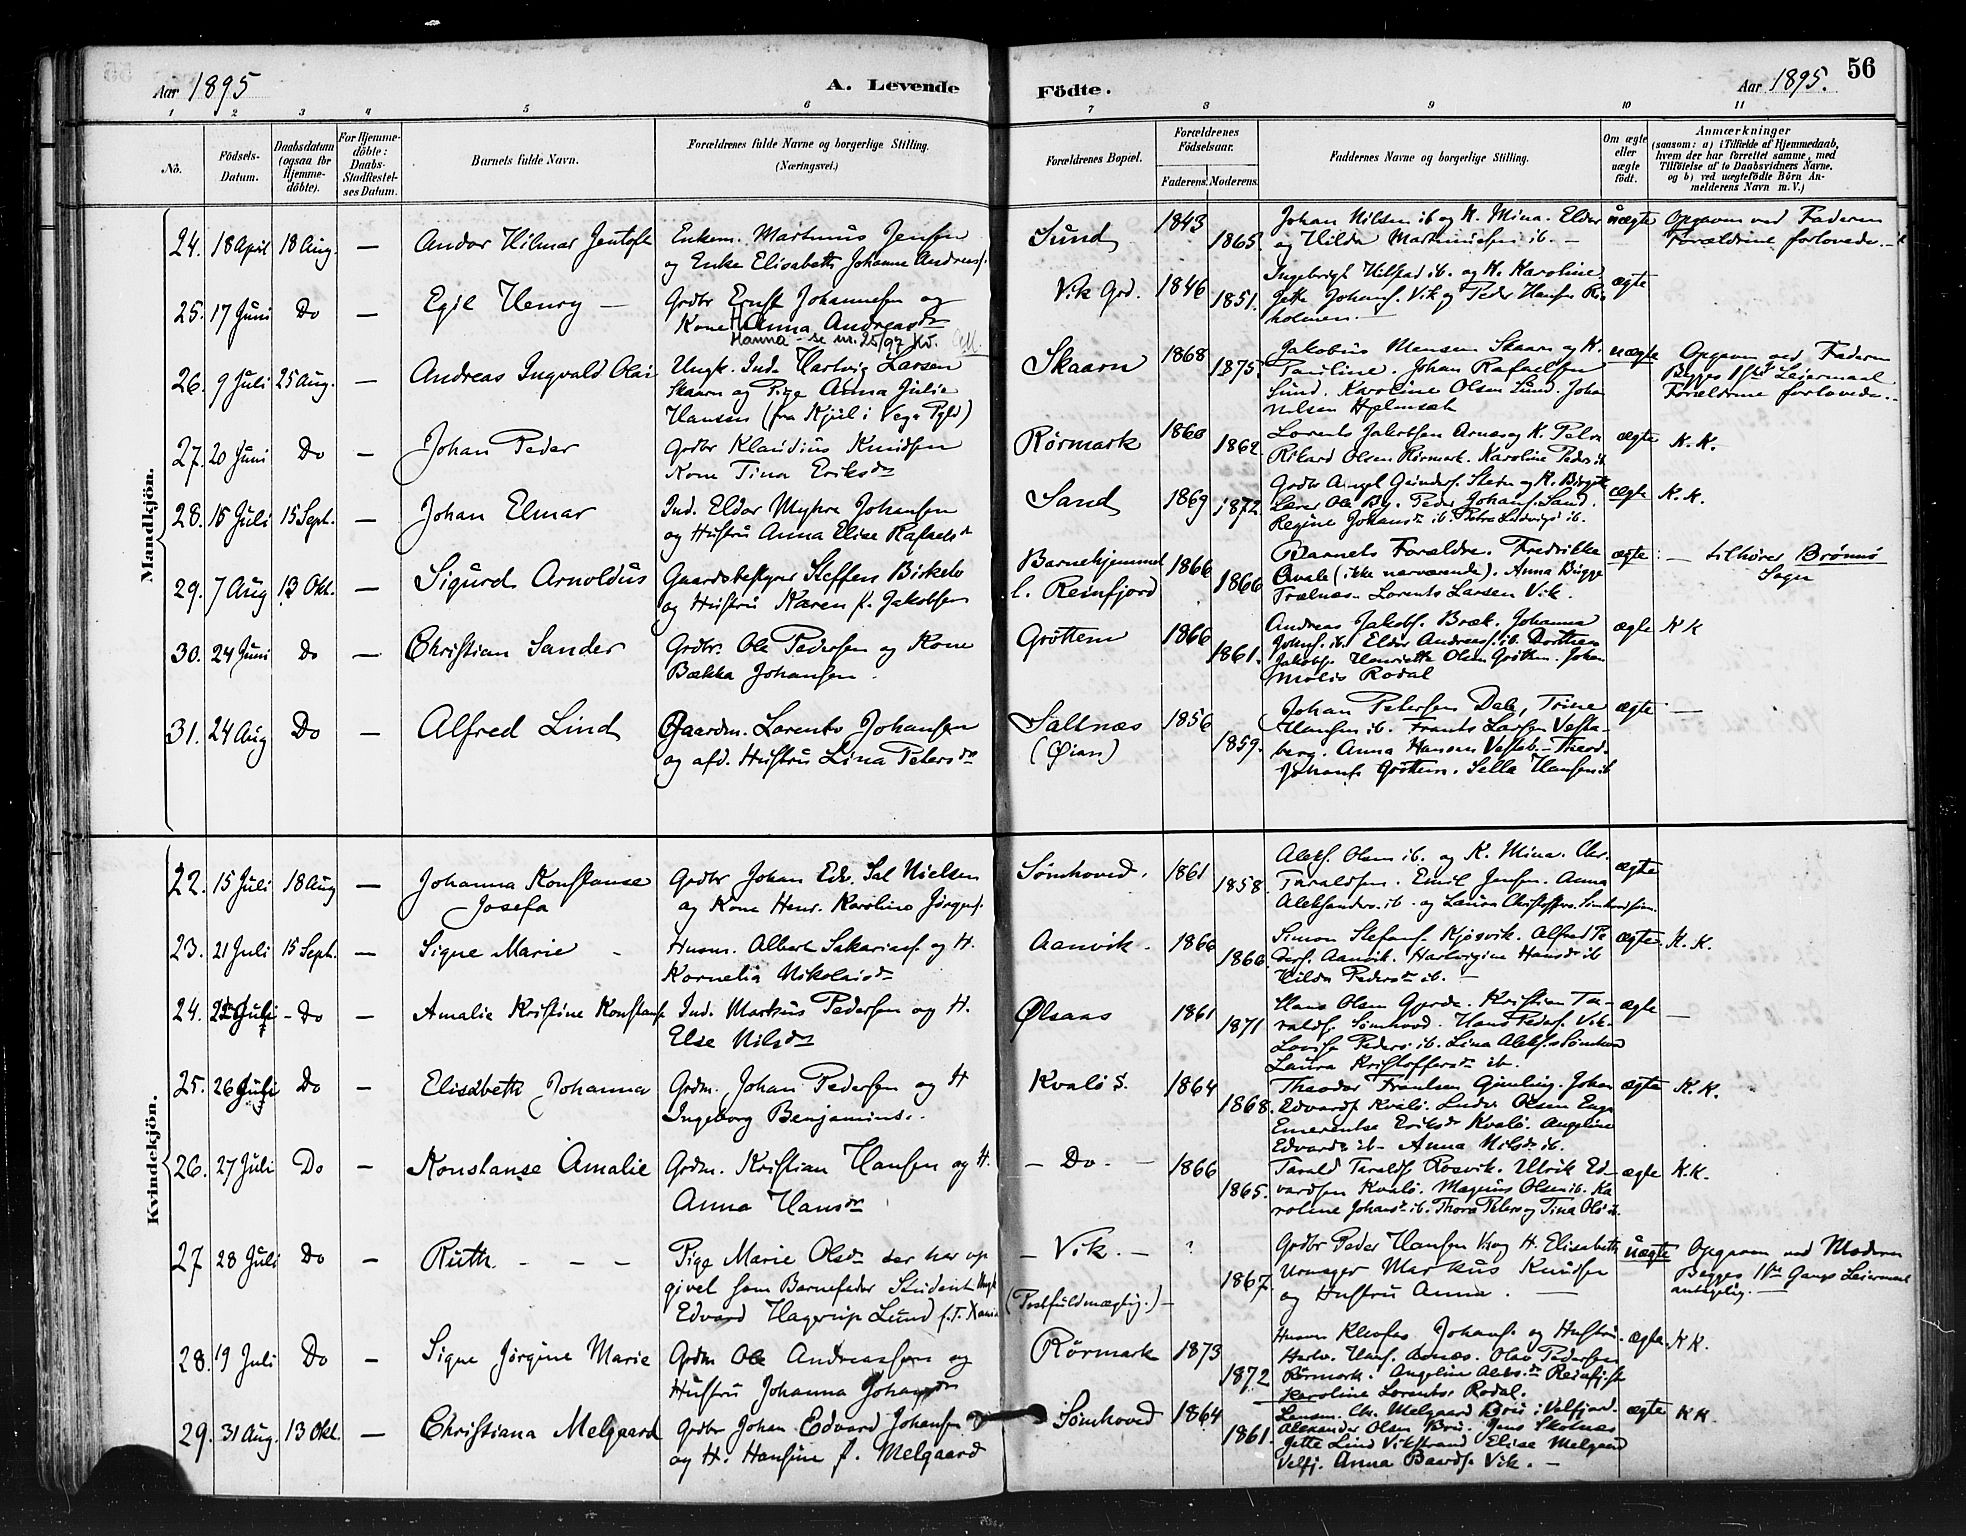 Aar 1895
A. Levende
Födte.
Aar 1895.
56
1 2 3 4 5 6 7 8 9 10 11
No.
Födsels-Datum.
Daabsdatum (ogsaa for Hjemme-döbte).
For Hjemme-döbte: Daabs-Stadfæstel-ses Datum.
Barnets fulde Navn.
Forældrenes fulde Navne og borgerlige Stilling. (Næringsvei.)
Forældrenes Bopæl.
Forældrenes Födselsaar.
Faderens. Moderens.
Faddernes Navne og borgerlige Stilling.
Om ægte eller uægte födt.
Anmærkninger
(saasom: a) i Tilfælde af Hjemmedaab, hvem der har forrettet samme, med Tilföielse af to Daabsvidners Navne, og b) ved uægtefödte Börn Anmelderens Navn m. V.)
Mandkjön.
24. 18 April 18 Aug. — Andor Hilmar Jentoft
Enkem. Martinus Jensen
og Enke Elisabeth Johanne Andreasf.
Sund 1843 1865
Johan Nilsen ib og K. Mina. Eldor
og Hilda Martinusen ib. —
uægte
Opgaven ved Faderen
Forældrene forlovede.
25. 17 Juni Do — Egil Henry —
Grdbr Ernst Johannesen og
Kone Anna Andreasdr
Hanna - se nr. 25/97 kv.
Vik Grd. 1846 1851.
Ingebrigt Hilstad ib. og K. Karoline
Jette Johansf. Vik og Peder Hansen
holmen. —
ægte
26. 9 Juli 25 Aug. — Andreas Ingvald Olai
Ungk. Ind. Hartvig Larsen
Skaarn og Pige Anna Julie
Hansen (fra Kjul i Vega Pgld)
Skaarn 1868 1875.
Jakobus Monsen Skaarn og K.
Pauline. Johan Rafaelsen
Sund. Karoline Olsen Sund. Johan
Nilsen Hjelmsæt
uægte
Opgaven ved Faderen
Begges 1ste Leiermaal
Forældrene forlovede.
27. 20 Juni Do — Johan Peder
Grdbr Klaudius Knudsen
Kone Tina Eriksdr
Rörmark 1860 1862
Lorents Jakobsen Arnæs og K. Petra
Rikard Olsen Rörmark. Karoline Peders ib
ægte K. K.
28. 15 Juli 15 Sept. — Johan Elmar
Ind. Eldor Myhre Johansen
og Hustru Anna Elise Rafaelsdr
Sand 1869 1872
Lærer Ole By. Peder Johansf. Sand.
Regine Johansdr ib. Petra Ludvigs ib.
ægte K. K.
29. 7 Aug 13 Okt. — Sigurd Arnoldus
Gaardsbestyrer Steffen Birkelo
og Hustru Karen f. Jakobsen
Barnehjemmet
l. Reinfjord 1866 1866
Barnets Forældre. Fredrikke
Qvale (ikke nærværende). Anna Bugge
Trælnes. Lorents Larsen Vik.
ægte — tilhører Brönnö
Sogn
30. 24 Juni Do — Christian Sander
Grdbr. Ole Pedersen og Kone
Bækka Johansen.
Gröttem 1866 1861.
Andreas Jakobsf. Bræk. Johanna
Johnsf. ib. Eldor Andreasf. ib. Dorthea
Jakobsf. Henriette Olsen Gröttem. Johan
Molis Rodal
ægte K K
31. 24 Aug Do — Alfred Lind
Gaardm. Lorents Johansen
og afd. Hustru Lina Petersdr
Saltnæs
(Øian) 1856 1859.
Johan Petersen Dale, Trine
Hansen ib. Frants Larsen Vesta-
berg. Anna Hansen Vestab. Theod.
Johansf. Gröttem. Sella Hansen ib
ægte —
Kvindekjön.
22. 15 Juli 18 Aug — Johanna Konstanse
Josefa
Grdbr Johan Edv. Sal Nielsen
og Kone Henr. Karoline Jörgensf.
Sömhoved. 1861 1858.
Aleks. Olsen ib. og K. Mina. Chr.
Taraldsen. Emil Jensen. Anna
Aleksanders. ib. og Laura Christoffers. Sömhovedsun.
ægte
23. 21 Juli 15 Sept. — Signe Marie
Husm. Albert Sakariasf. og H.
Kornelia Nikolaisdr
Aanvik. 1866 1866
Simon Stefansf. Kjösvik. Alfred Pe
dersf. Aanvik. Hartvigine Hansdr ib
Hilda Pedersdr ib. —
ægte K. K.
24. 22 Juli - Do — Amalie Kristine Konstanse
Ind. Markus Pedersen og H.
Else Nilsdr
Ølsaas 1861 1871
Hans Olsen Gjerde. Kristian Ta-
raldsf. Sömhoved. Hans Pedersf. Vik.
Lovise Peders. ib. Lina Aleks. Sömhoved
Laura Kristoffersdr ib.
ægte —
25. 26 Juli Do — Elisabeth Johanna
Grdm. Johan Pedersen og H
Ingeborg Benjamins.
Kvalö S. 1864 1868.
Theodor Frantsen Gimling. Johan
Edvardsf. Kvalö. Ludv. Olsen
Emerentse Eriksdr Kvalö. Angeline
Edvardsdr ib. Anna Nilsdr ib.
ægte K. K.
26. 27 Juli Do — Konstanse Amalie
Grdm. Kristian Hansen og H.
Anna Hansdr
— Do. — 1866 1865.
Tarald Taraldsf. Rosvik. Ulrik Ed-
vardsen Kvalö. Magnus Olsen ib. Ka
roline Johansdr ib. Thora Peters og Tina Ols ib.
ægte K. K.
27 28 Juli Do — Ruth. — — —
Pige Marie Olsdr der har op
givet som Barnefader Student Ungk
Edvard Hagerup Lund f. T. Xania
— Vik. —
(Postfuldmægtig.) — ? 1867.
Grdbr Peder Hansen Vik og H. Elisabeth
Urmager Markus Knudsen
og Hustru Anna. —
uægte
Opgaven ved Moderen
Begges 1ste Gangs Leiermaal
antagelig. —
28. 19 Juli Do — Signe Jörgine Marie
Grdm Ole Andreassen og
Hustru Johanna Johansdr
Rörmark 1873 1872
Husm Kleofas Johansf. og Hustru
Hartv. Hansf. Arnæs. Olav Pedersen
Rörmark. Angeline Aleksdr Reinfjord
Karoline Lorents. Rodal.
ægte K K.
29. 31 Aug. 13 Okt. — Christiana Melgaard
Grdbr Johan Edvard Johansen
og H. Hansine f. Melgaard
Sömhoved 1864 1861.
Lensm. Chr. Melgaard Bröi i Velfjord.
Alexander Olsen Bröi. Jens Skotnæs
Jette Lind Vikstrand Elise Melgaard
Velfj. Anna Baards. Vik. —
ægte K K.